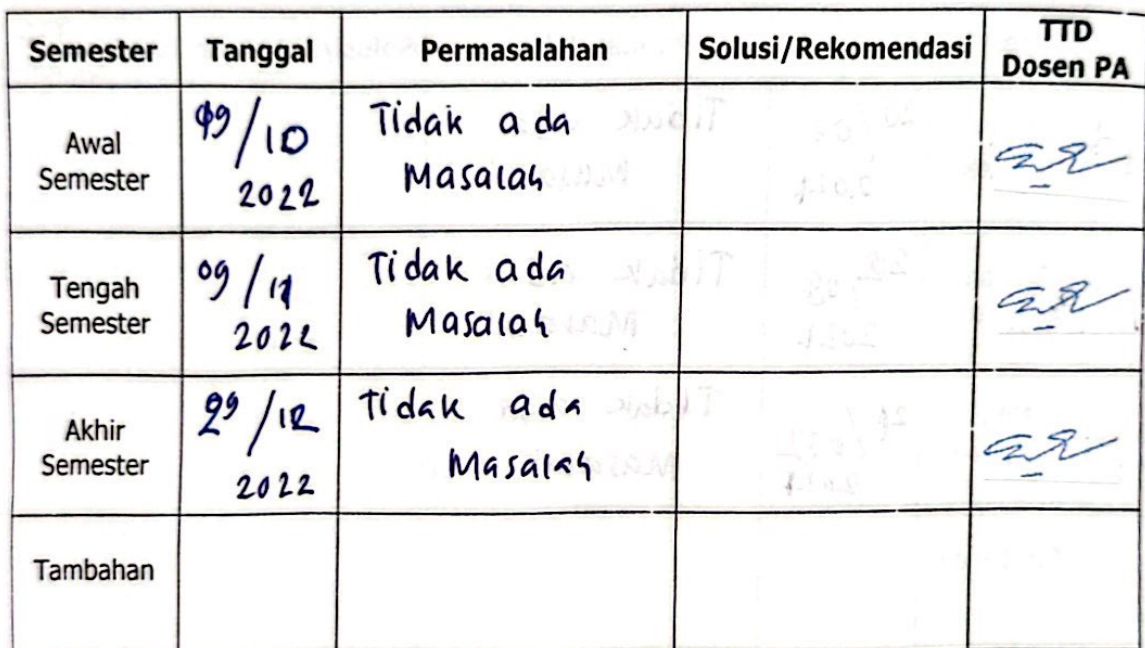 Semester Tanggal Permasalahan Solusi/Rekomendasi TTD
Dosen PA
Awal
Semester
09/10
2022
Tidak ada
Masalah
Tengah
Semester
09/11
2022
Tidak ada
Masalah
Akhir
Semester
29/12
2022
Tidak ada
Masalah
Tambahan